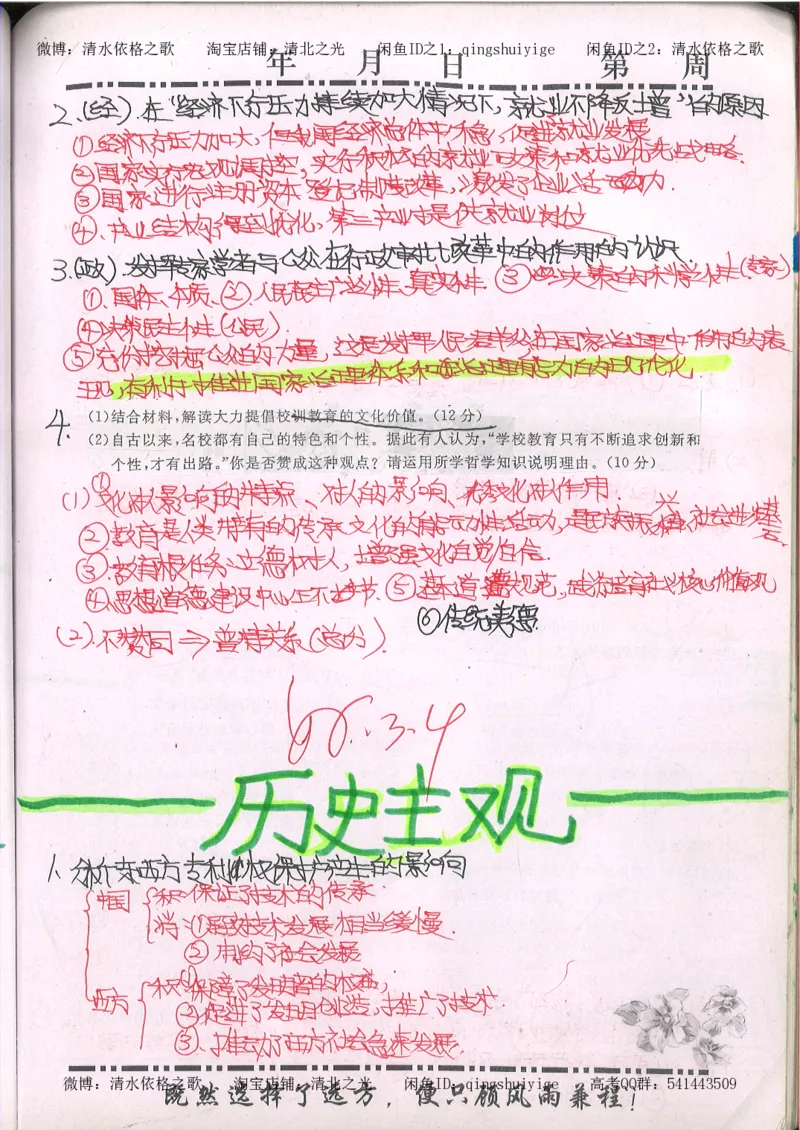 微博：清水依格之歌 淘宝店铺：清北之光 闲鱼ID之1：qingshuiyige 闲鱼ID之2：清水依格之歌
年 月 日 第 周
2、(经).在“经济下行压力持续加大情况下，就业不降反增”的原因
①经济下行压力加大，但我国经济总体平稳，促进就业发展
②国家实行宏观调控，实行积极的就业政策和就业优先战略.
③国家进行注册资本登记制度改革，激发了企业活动力.
④.产业结构得到优化，第三产业提供就业岗位
3.(政).发挥专家学者与公众在行政审批改革中的作用的认识.
①.国体、本质、②.人民民主广泛性、真实性.③决策的科学性(专家)
④决策民主性(公民).
⑤充分挖掘公众的力量，这是发挥人民群众在国家治理中作用的表
现，有利于推进国家治理体系和治理能力的现代化.
4.
(1)结合材料，解读大力提倡校训教育的文化价值。(12分)
(2)自古以来，名校都有自己的特色和个性。据此有人认为，“学校教育只有不断追求创新和
个性，才有出路。”你是否赞成这种观点？请运用所学哲学知识说明理由。(10分)
(1)①文化对影响的特点、对人的影响、优秀文化对作用.
②教育是人类特有的传承文化的能动性活动，是民族振兴、社会进步基
③.教育根本任务、立德树人，增强文化自觉自信.
④思想道德建设中心环节.⑤基本道德规范，是培育社核心价值观
⑥传统美德
(2).不赞同⇒普特关系(总分).
历史主观
1、分析东西方专利权保护产生的影响
中国 积:保证了技术的传承
消:①导致技术发展相当缓慢.
②制约了社会发展
西方 积①保障了发明者的权益，
②促进了发明创造，推广了技术.
③.推动了西方社会急速发展.
微博：清水依格之歌 淘宝店铺：清北之光 闲鱼ID之1：qingshuiyige 高考QQ群：541443509
既然选择了远方，便只顾风雨兼程！